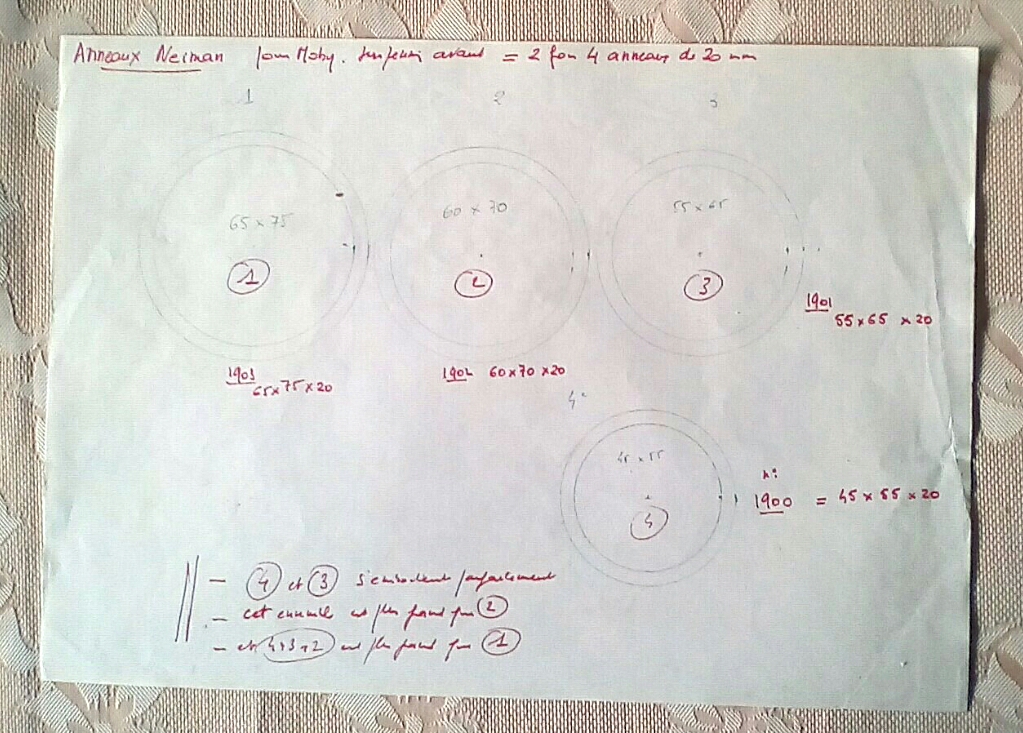 Anneaux Neiman pour Moby. suspension avant = 2 fois 4 anneaux de 20 mm
1 2 3
65 x 75
60 x 70
55 x 65
1
2
3
1901
55 x 65 x 20
1903
65 x 75 x 20
1902 60 x 70 x 20
4°
45 x 55
n°:
1900 = 45 x 55 x 20
4
- 4 et 3 s'emboitent parfaitement
- cet ensemble est plus grand que 2
- et 4+3+2 est plus grand que 1